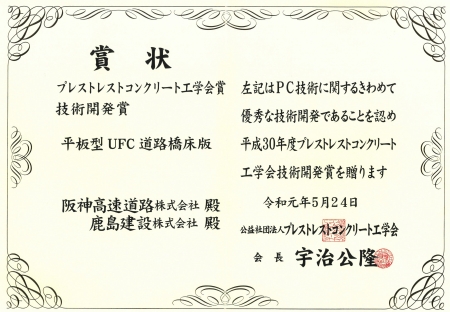 賞状
プレストレストコンクリート工学会賞
技術開発賞
平板型UFC道路橋床版
阪神高速道路株式会社 殿
鹿島建設株式会社 殿
左記はPC技術に関するきわめて
優秀な技術開発であることを認め
平成30年度プレストレストコンクリート
工学会技術開発賞を贈ります
令和元年5月24日
公益社団法人プレストレストコンクリート工学会
会長 宇治公隆